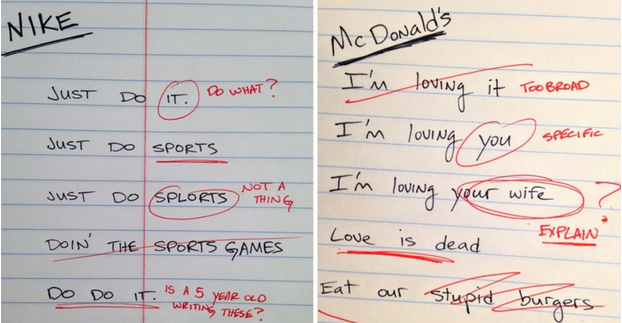 NIKE
JUST DO IT. DO WHAT?
JUST DO SPORTS
JUST DO SPLORTS NOT A
THING
DOIN' THE SPORTS GAMES
DO DO IT. IS A 5 YEAR OLD
WRITING THESE?
McDonald's
I'm loving it TOO BROAD
I'm loving you SPECIFIC
I'm loving your wife ?
EXPLAIN
Love is dead
Eat our stupid burgers